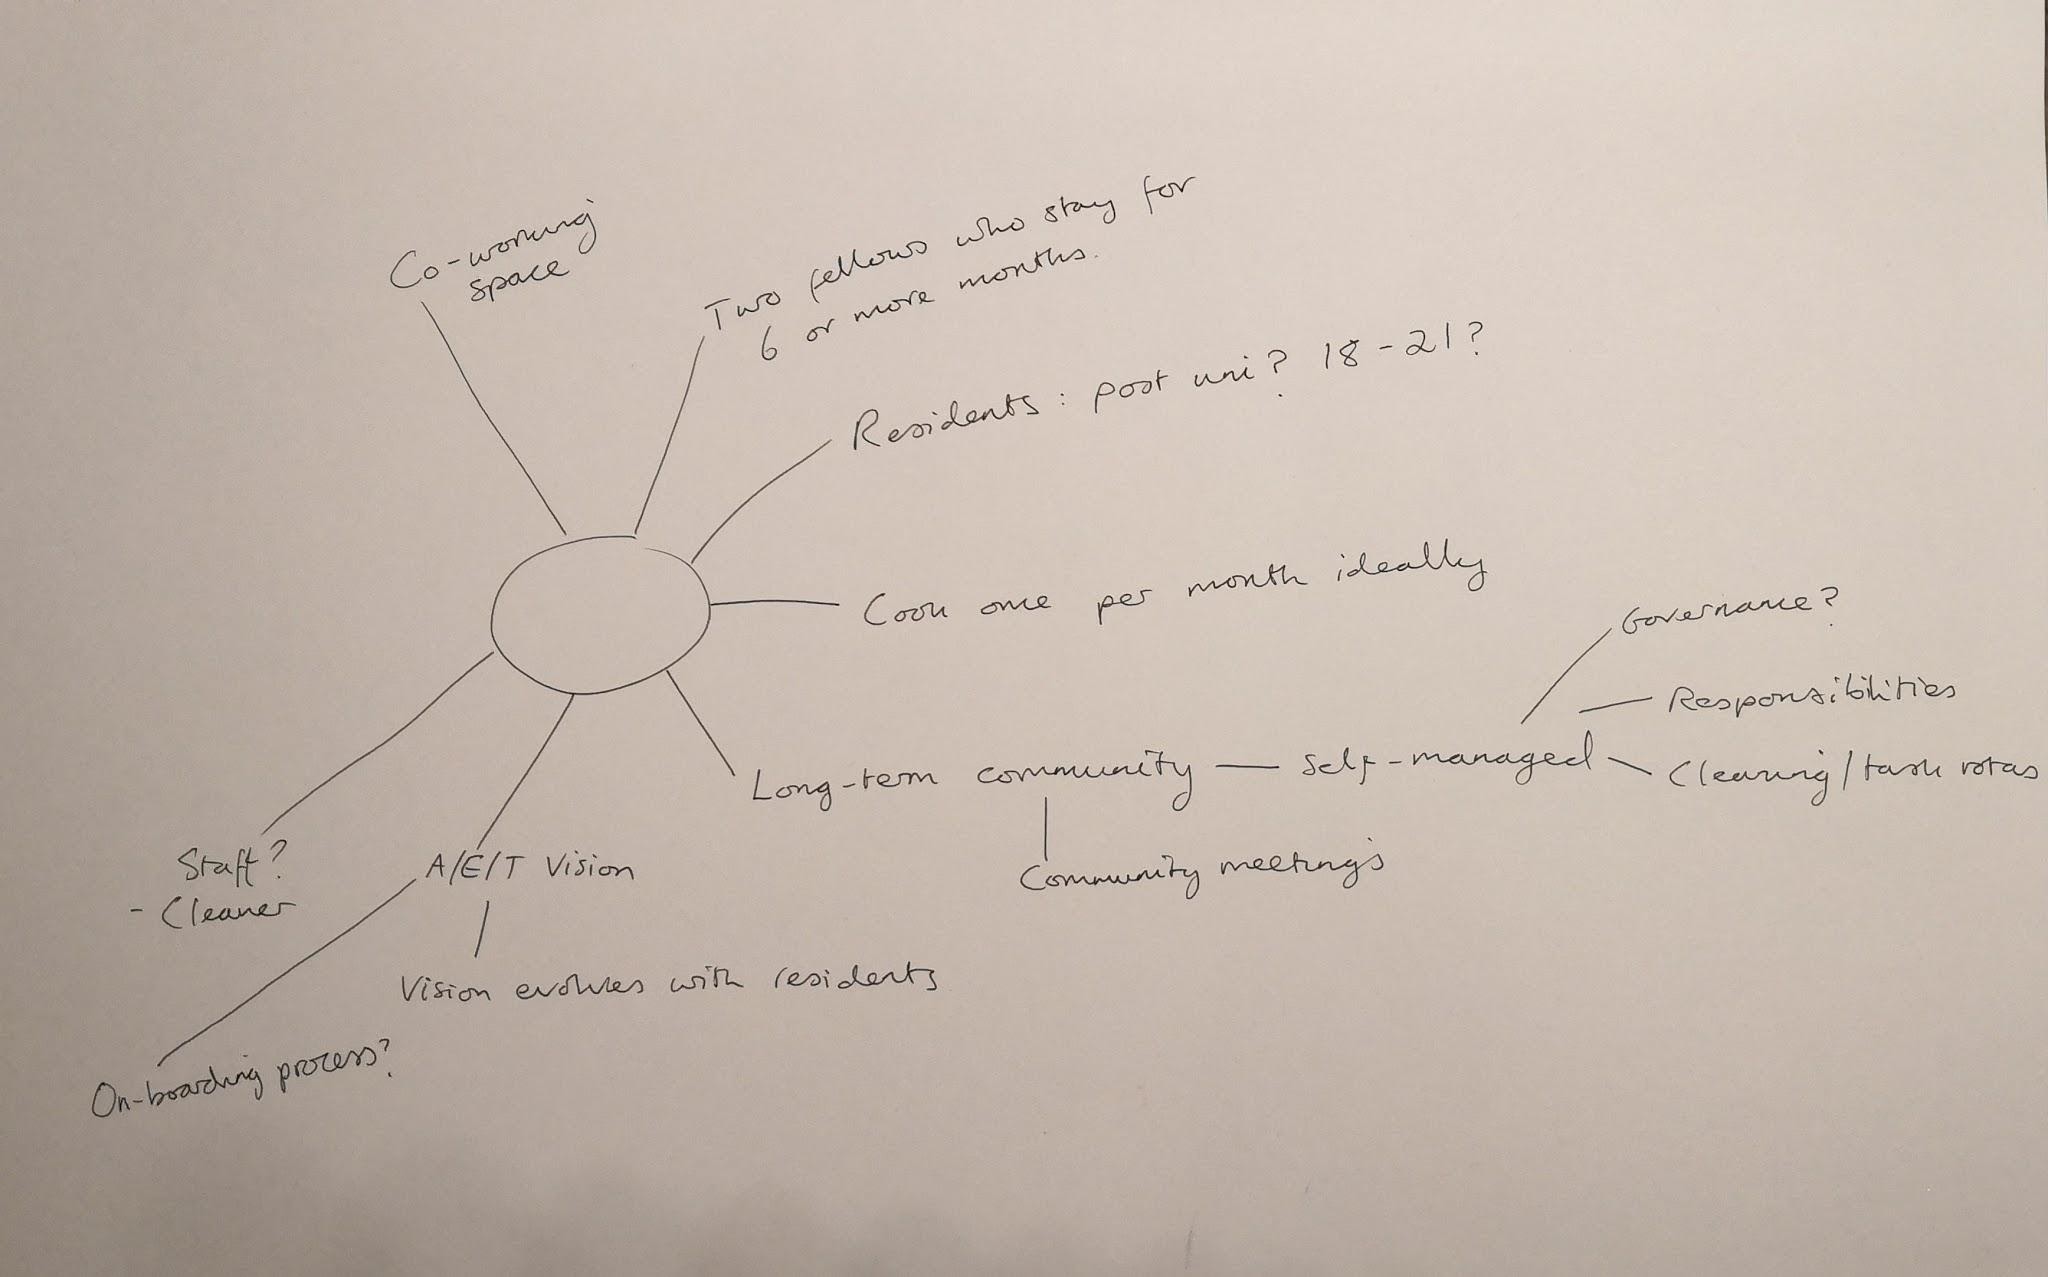 Co-working
space
Two fellows who stay for
6 or more months.
Residents : post uni? 18-21?
Cook once per month ideally
Governance?
Responsibilities
Long-term community — Self-managed
Cleaning/task rotas
Community meetings
Staff?
- Cleaner
A/E/T Vision
Vision evolves with residents
On-boarding process?